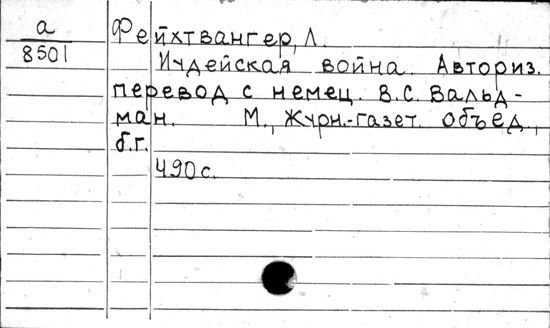 а
8501
Фейхтвангер, Л.
Иудейская война. Авториз.
перевод с немец. В.С. Вальд-
ман. М., Журн.-газет. объед.,
б.г.
490с.